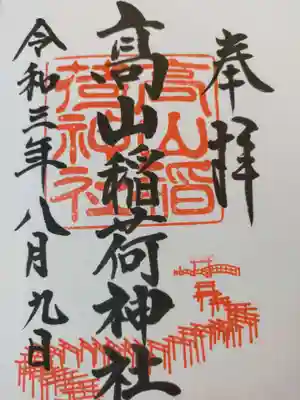 奉拝
髙山稲荷神社
令和三年八月九日
高山稲
荷神社